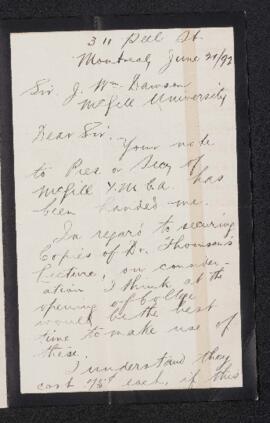 311 Peel St.
Montreal June 21/92
Sir. J. Wm Dawson
McGill University
Dear Sir:-
Your note
to Pres or Secy of
McGill Y.M.C.A. has
been handed me.
In regard to securing
Copies of Dr. Thomson's
lecture, on consider-
ation I think at the
opening of College
would be the best
time to make use of
these.
I understand they
cost each, if this